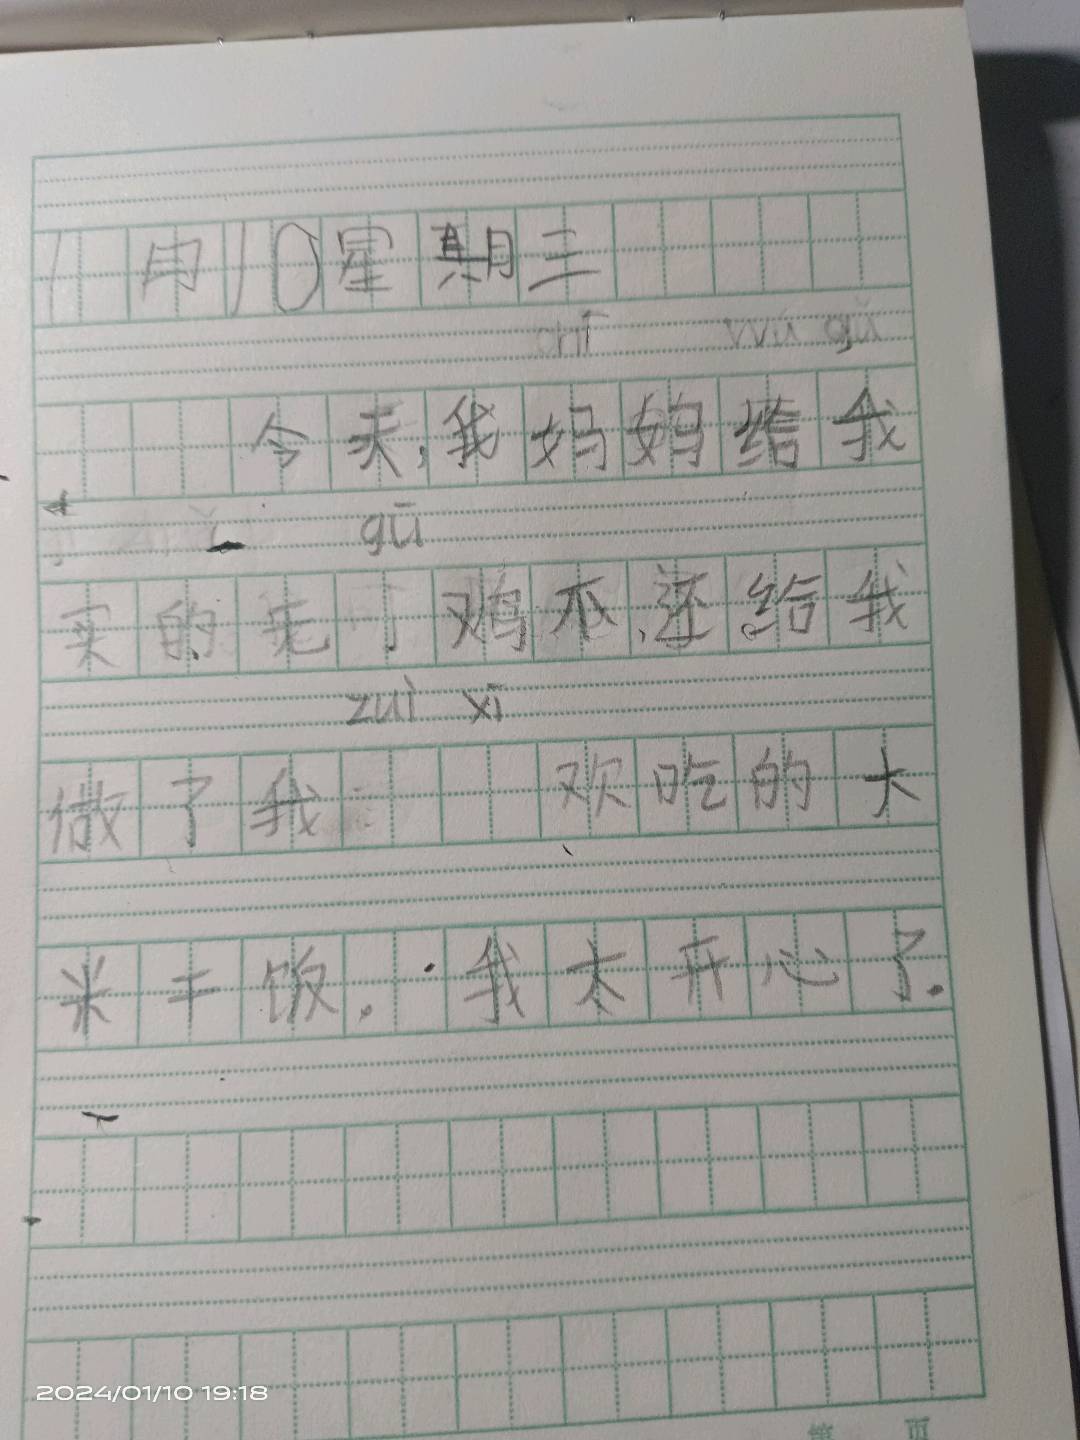 1月10星期三
chī wú gǔ
今天,我妈妈给我
gū
买的无 鸡爪,还给我
zuì xǐ
做了我 欢吃的大
米干饭.我太开心了.
2024/01/10 19:18
第 页